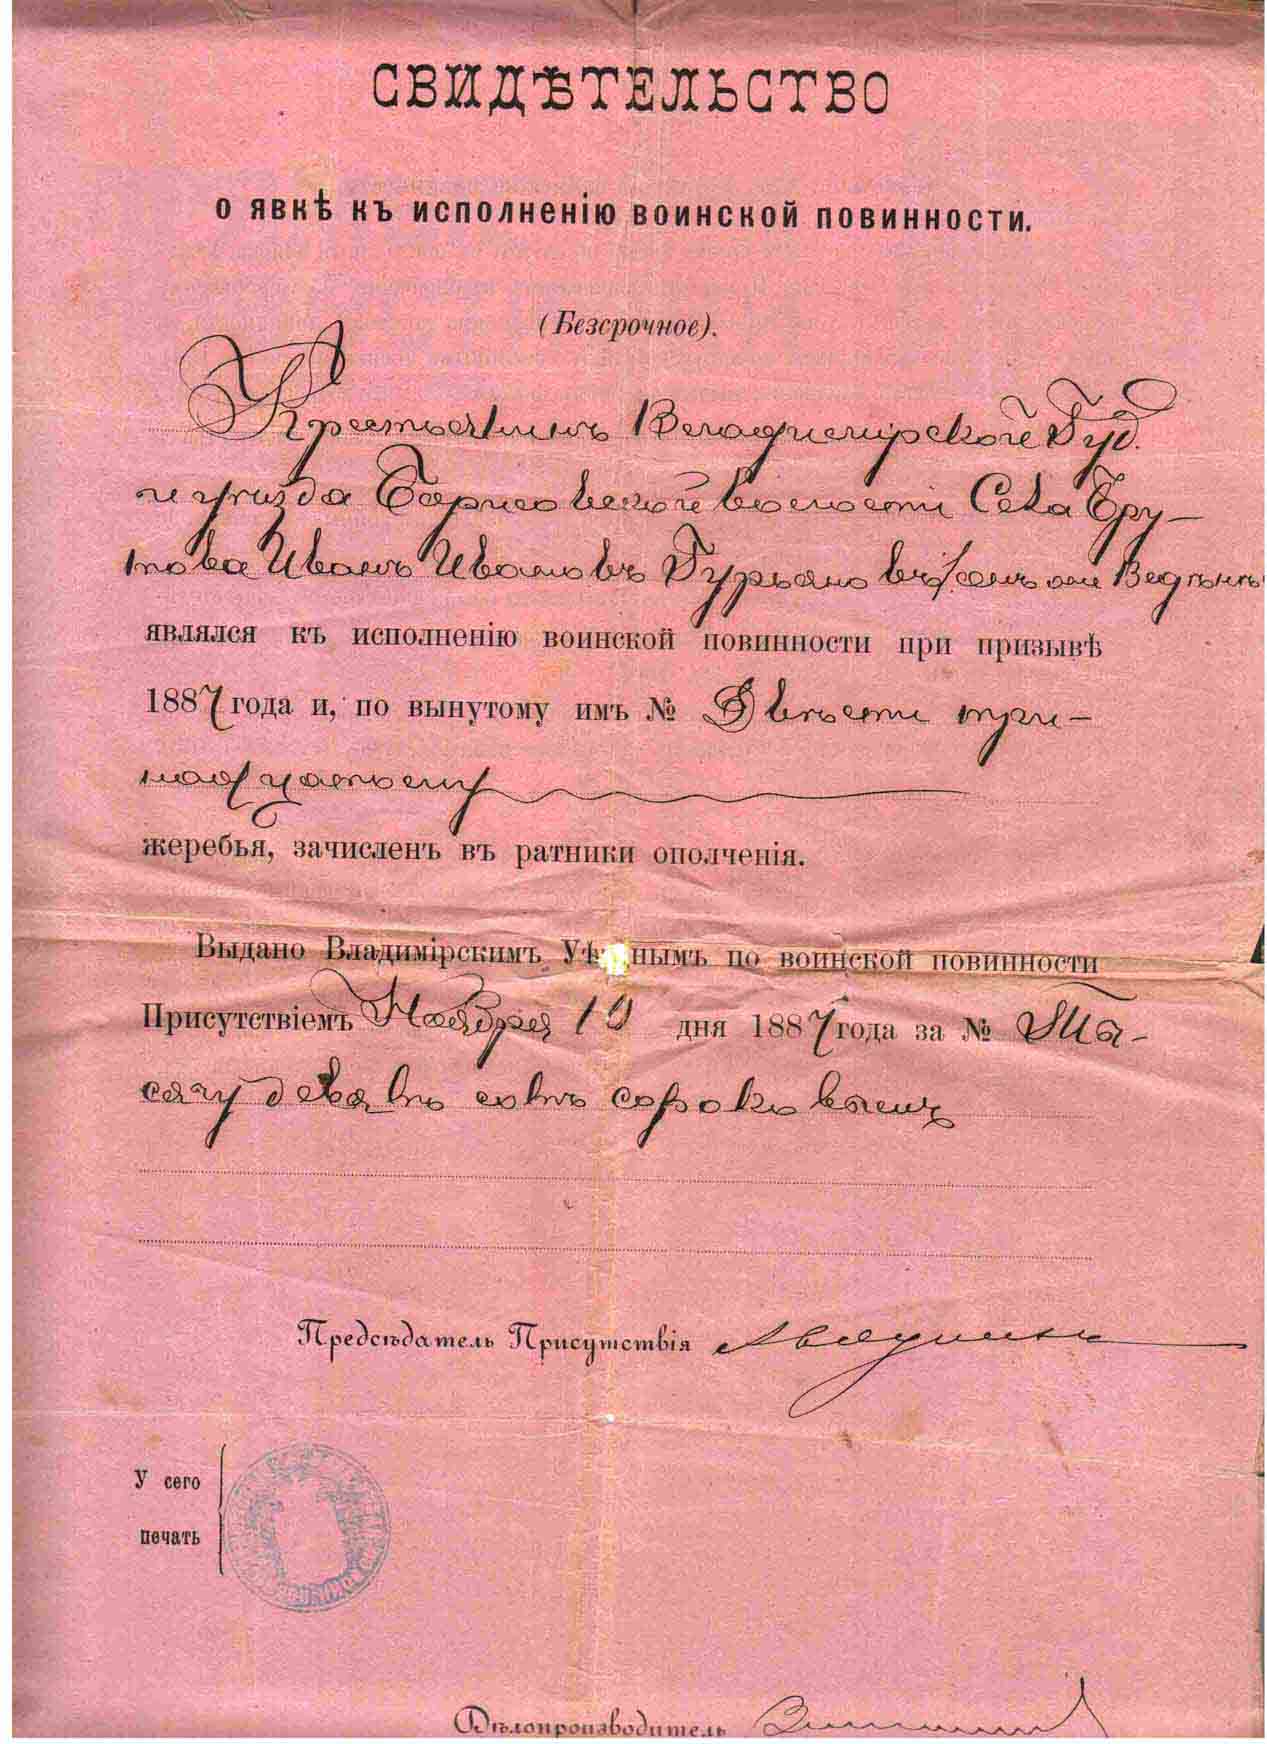 СВИДѢТЕЛЬСТВО
о явкѣ къ исполненію воинской повинности.
(Безсрочное).
Крестьянинъ Владимірской Губ.
и уѣзда Борисовской волости Села Бру-
това Иванъ Ивановъ Гурьяновъ
являлся къ исполненію воинской повинности при призывѣ
1887 года и, по вынутому имъ № Двѣсти три-
надцатому
жеребья, зачисленъ въ ратники ополченія.
Выдано Владимірскимъ Уѣзднымъ по воинской повинности
Присутствіемъ Ноября 19 дня 1887 года за № Ты-
сячу девять сотъ сорокъ
Предсѣдатель Присутствія
У сего
печать
Дѣлопроизводитель